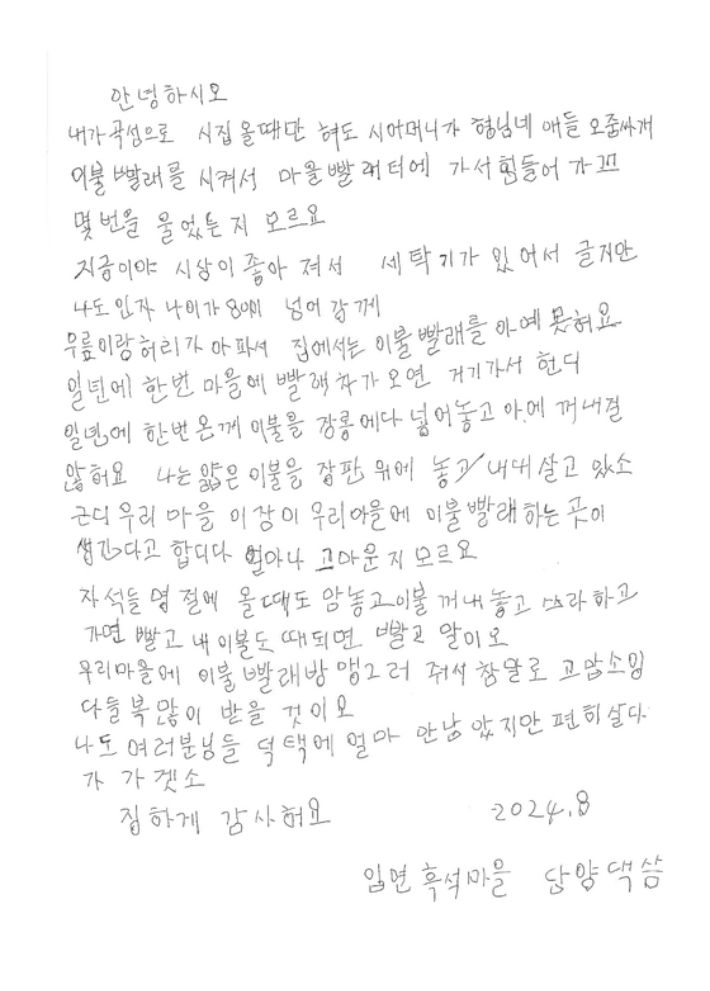 안녕하시오
내가 곡성으로 시집 올때만 혀도 시어머니가 형님네 애들 오줌싸개
이불 빨래를 시켜서 마을 빨래터에 가서 힘들어 가꼬
몇번을 울었는지 모르요
지금이야 시상이 좋아 져서 세탁기가 있어서 글지만
나도 인자 나이가 80이 넘어 감께
무릎이랑 허리가 아파서 집에서는 이불 빨래를 아예 못혀요
일년에 한번 마을에 빨래차가 오면 거기가서 헌디
일년에 한번 온께 이불을 장롱에다 넣어놓고 아에 꺼내질
않혀요 나는 얇은 이불을 장판 위에 놓고 내대 살고 있소
근디 우리 마을 이장이 우리마을에 이불빨래 하는 곳이
생긴다고 합디다 얼마나 고마운지 모르요
자석들 명절에 올때도 암놓고 이불 꺼내 놓고 쓰라 하고
가면 빨고 내 이불도 때되면 빨고 알이오
우리마을에 이불 빨래방 맹그러 줘서 참말로 고맙소잉
다들 복 많이 받을 것이오
나도 여러분님들 덕택에 얼마 안남았지만 편히 살다
가 가겟소
집하게 감사혀요 2024.8
입면 흑석마을 담양댁 씀